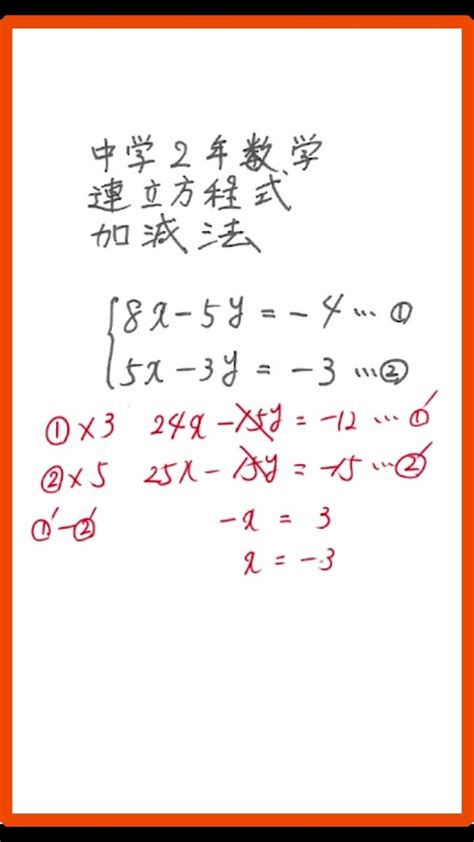 中学2年数学
連立方程式
加減法
8x-5y=-4…①
5x-3y=-3…②
①×3 24x-15y=-12…①'
②×5 25x-15y=-15…②'
①'-②' -x=3
x=-3